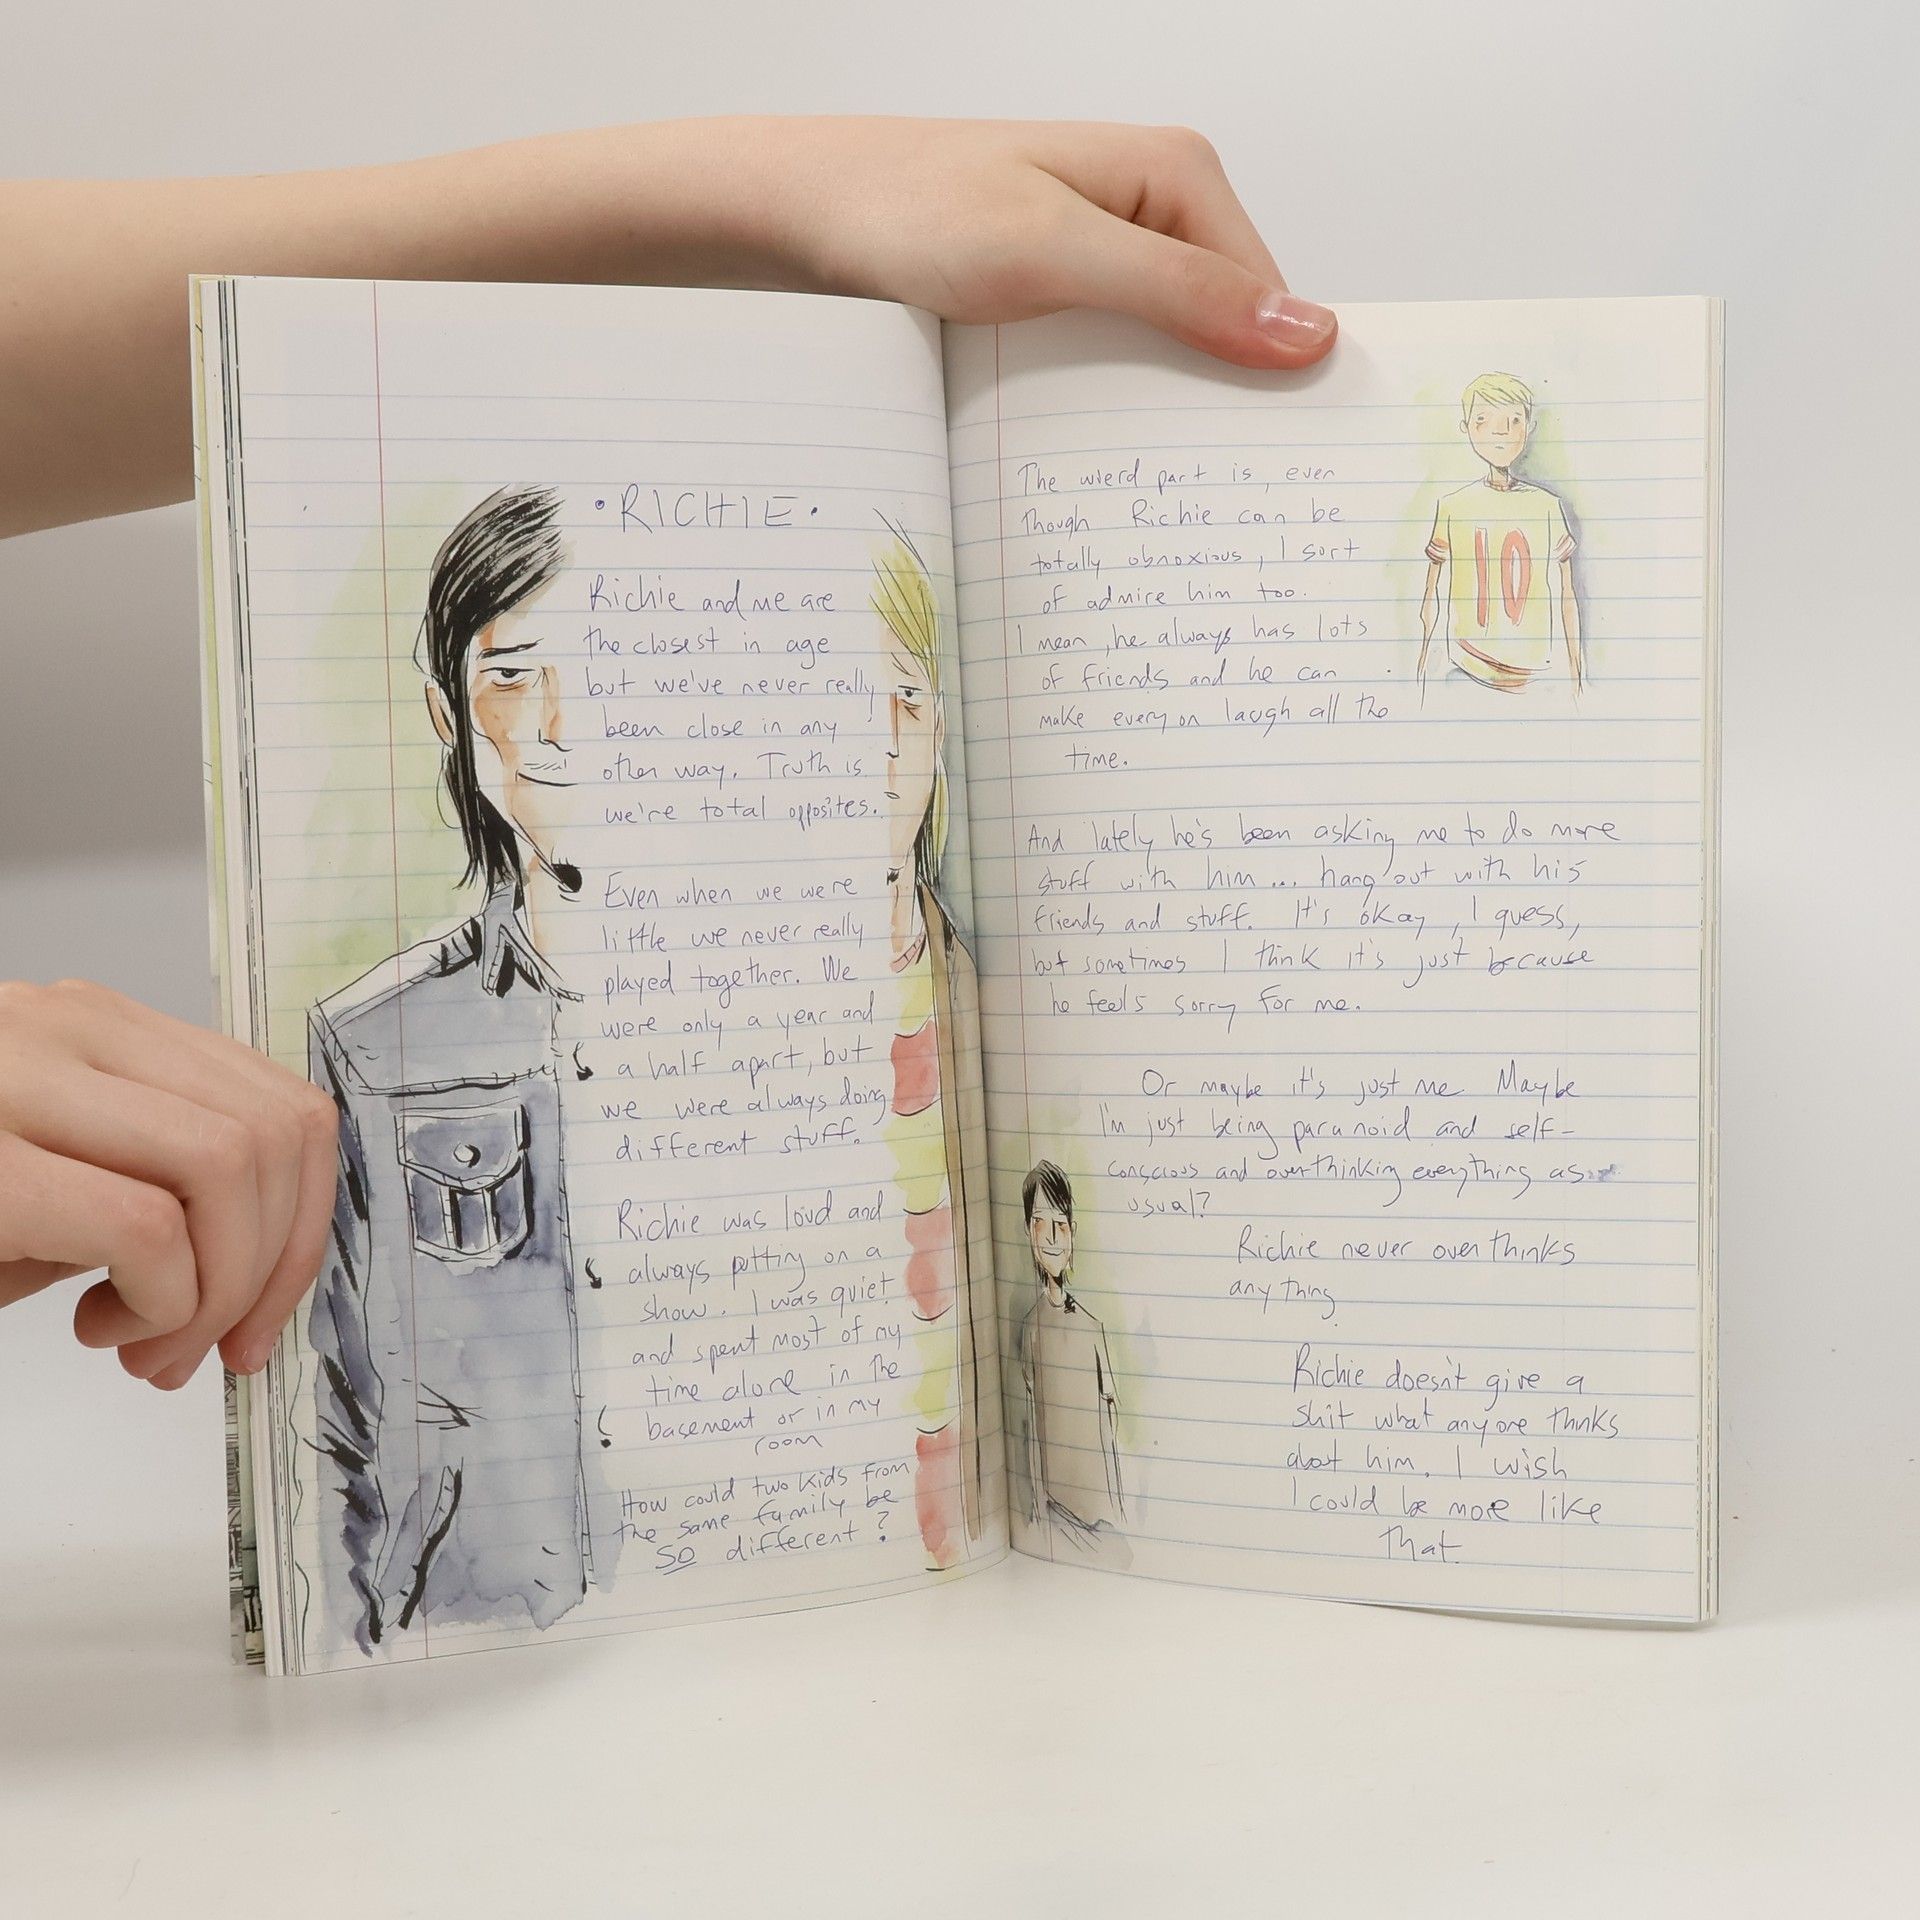 • RICHIE •
Richie and me are
the closest in age
but we've never really
been close in any
other way. Truth is
we're total opposites.
Even when we were
little we never really
played together. We
were only a year and
a half apart, but
we were always doing
different stuff.
Richie was loud and
always putting on a
show. I was quiet
and spent most of my
time alone in the
basement or in my
room
How could two kids from
the same family be
SO different?
The wierd part is, even
though Richie can be
totally obnoxious, I sort
of admire him too.
I mean, he always has lots
of friends and he can
make every on laugh all the
time.
10
And lately he's been asking me to do more
stuff with him... hang out with his
friends and stuff. It's okay, I guess,
but sometimes I think it's just because
he feels sorry for me.
Or maybe it's just me Maybe
I'm just being paranoid and self-
conscious and overthinking everything as
usual?
Richie never over thinks
any thing.
Richie doesn't give a
shit what anyone thinks
about him. I wish
I could be more like
that.